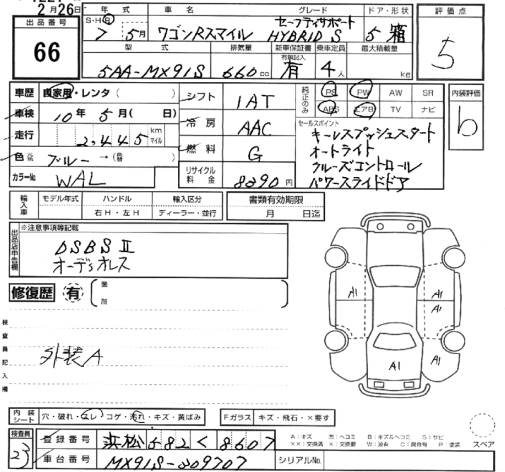 2月26日
出品番号
66
S・H・R 年式 車名 グレード ドア・形状
7 5月 ワゴンRスマイル セーフティサポート HYBRID S 5 箱
評価点
5
型式 排気量 新車保証書 乗車定員 最大積載量
有限記入
5AA-MX91S 660cc 有 4人 kg
車歴 自家用・レンタ( )
車検 10年5月( 日)
走行 2,445 km マイル
色 ブルー →
カラーNo. WAL
シフト 1AT
冷房 AAC
燃料 G
リサイクル料金 8290円
純正のみ PS PW AW SR
ABS エアB TV ナビ
内装評価
b
セールスポイント
キーレスプッシュスタート
オートライト
クルーズコントロール
パワースライドドア
輸入車 モデル年式 ハンドル 輸入区分
年 右H・左H ディーラー・並行
書類有効期限
月 日迄
※注意事項等記載
DSBS II
オーディオレス
修復歴 有 箇所
検査員記入欄
外装A
A1
A1
A1
A1
内装シート 穴・破れ・スレ・コゲ・汚れ・キズ・黄ばみ
Fガラス キズ・飛石・×要す
検査員 23
登録番号 浜松582く8607
車台番号 MX91S-209707
シリアルNo.
A:キズ U:ヘコミ B:キズルヘコミ S:サビ
××:交換済 ×:要交換 W:波有 C:腐食有 P:塗装
スペア